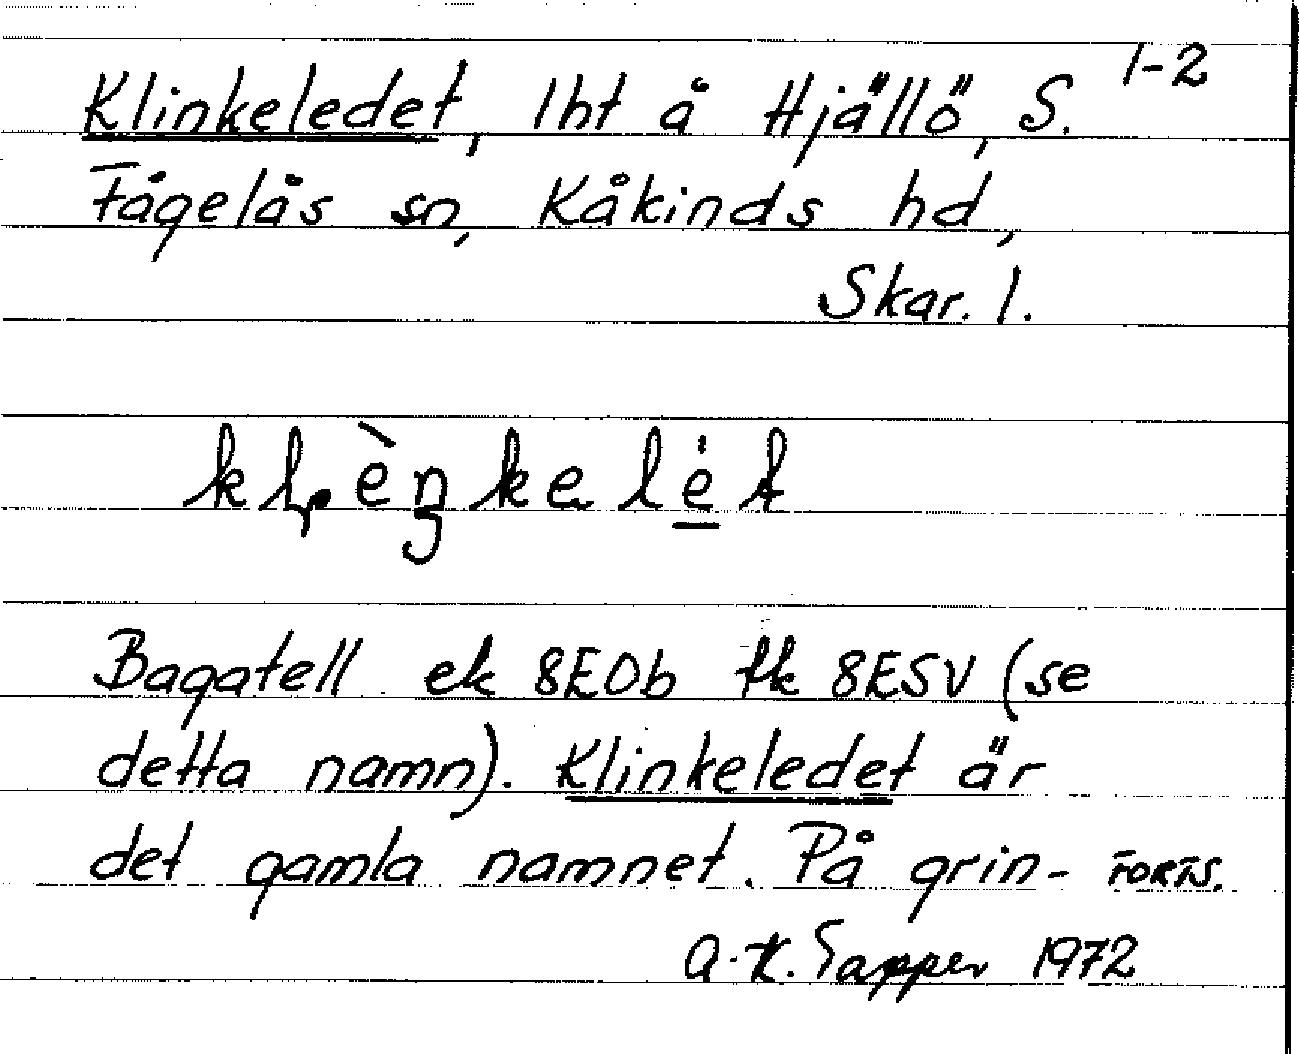 1-2
Klinkeledet, lht å Hjällö, S.
Fågelås sn, Kåkinds hd,
Skar. l.
Bagatell ek 8E0b fk 8E5V (se
detta namn). Klinkeledet är
det gamla namnet. På grin- FORTS.
A.-K. Tapper 1972